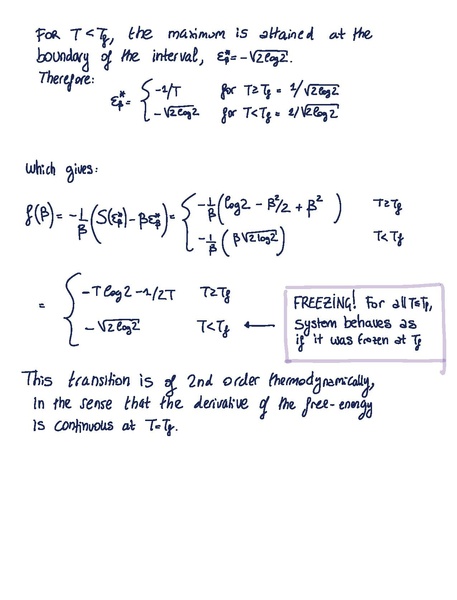 FOR T < T_f, the maximum is attained at the
boundary of the interval, ε*_β = -√2log2.
Therefore:
ε*_β = { -1/T for T ≥ T_f = 1/√2log2
-√2log2 for T < T_f = 1/√2log2
Which gives:
f(β) = -1/β (S(ε*_β) - βε*_β) = { -1/β (log2 - β²/2 + β²) T ≥ T_f
-1/β (β√2log2) T < T_f
= { -T log2 - 1/2T T ≥ T_f
-√2log2 T < T_f ←
FREEZING! For all T≤T_f,
system behaves as
if it was frozen at T_f
This transition is of 2nd order thermodynamically,
in the sense that the derivative of the free-energy
is continuous at T=T_f.